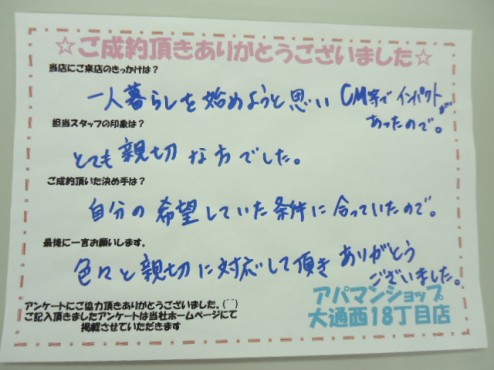 ☆ご成約頂きありがとうございました☆
当店にご来店のきっかけは？
一人暮らしを始めようと思い CM等でインパクトが
あったので。
担当スタッフの印象は？
とても親切な方でした。
ご成約頂いた決め手は？
自分の希望していた条件に合っていたので。
最後に一言お願いします。
色々と親切に対応して頂き ありがとう
ございました。
アンケートにご協力頂きありがとうございました。(^^)
ご記入頂きましたアンケートは当社ホームページにて
掲載させていただきます
アパマンショップ
大通西18丁目店